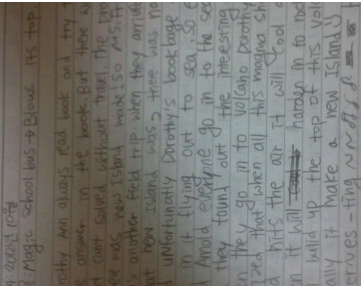 Magic School bus → Blows its top.
othy Ann always read book and try
e answer in the book. But there w
t cant solved without travl. the pro
ere was new Island made! so MS. Fr
s another field trip when they arrive
at new Island was, there was no
d unfortunatly Dorothy's bookbage
n it flying out to sea. so e
d Arnold everyone go in to the sea
they found out the interesting
n they go in to volcano Dorothy
zed that when all this magma sh
d hits the air it will cool a
n it will harden in to roc
build up the top of this volc
ally it make a new Island